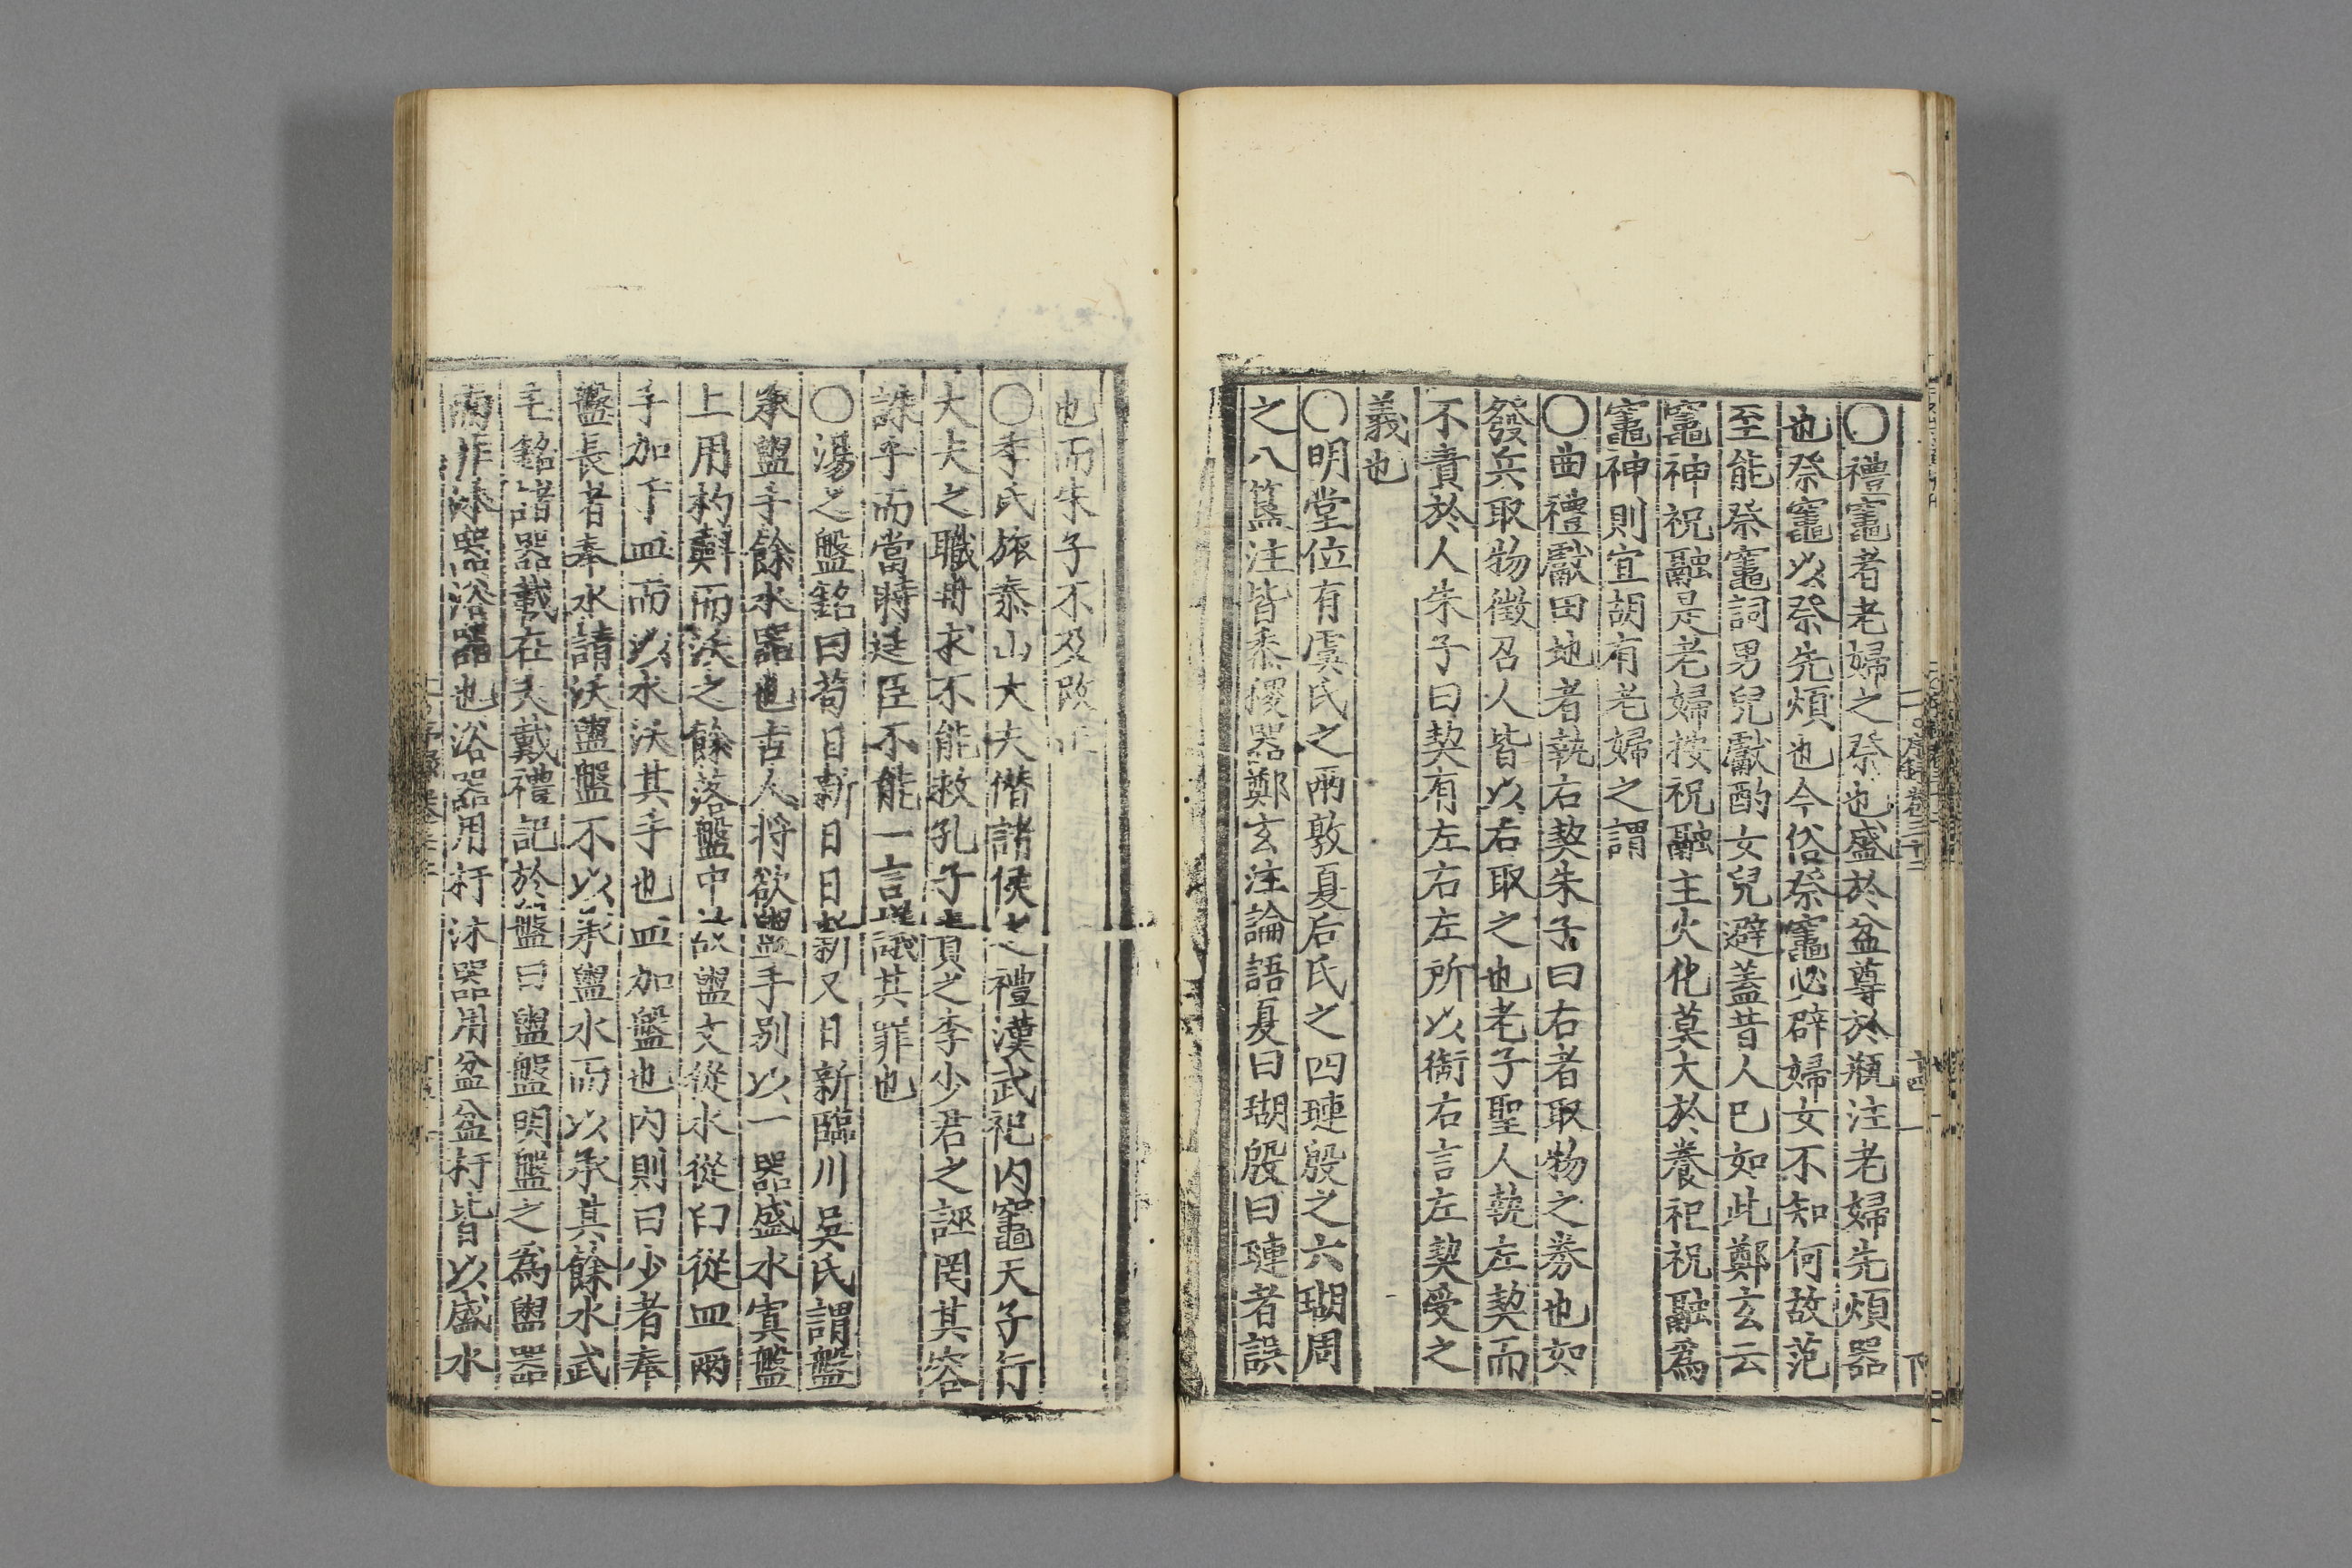 〇禮竈者老婦之祭也盛於盆尊於瓶注老婦先煩器
也祭竈以祭先煩也今俗祭竈必辟婦女不知何故范
至能祭竈詞男兒獻酌女兒避蓋昔人已如此鄭玄云
竈神祝融是老婦按祝融主火化莫大於養祀祝融爲
竈神則宜胡有老婦之謂
〇曲禮獻田地者執右契朱子曰右者取物之劵也如
發兵取物徵召人皆以右取之也老子聖人執左契而
不責於人朱子曰契有左右左所以銜右言左契受之
義也
〇明堂位有虞氏之兩敦夏后氏之四璉殷之六瑚周
之八簋注皆黍稷器鄭玄注論語夏曰瑚殷曰璉者誤
也而朱子不及改
〇季氏旅泰山大夫僭諸侯之禮漢武祀内竈天子行
大夫之職冉求不能救孔子責之李少君之誣罔其容
誅乎而當時廷臣不能一言議其罪也
〇湯之盤銘曰苟日新日日新又日新臨川吳氏謂盤
承盥手餘水器也古人將欲盥手别以一器盛水寘盤
上用杓㪺而沃之餘落盤中故盥文從水從臼從皿兩
手加于皿而以水沃其手也皿加盤也内則曰少者奉
盤長者奉水請沃盥盤不以承盥水而以承其餘水武
王銘諸器戴在大戴禮記於盤曰盥盤明盤之爲盥器
而非沐器浴器也浴器用杅沐器用盆盆杅皆以盛水